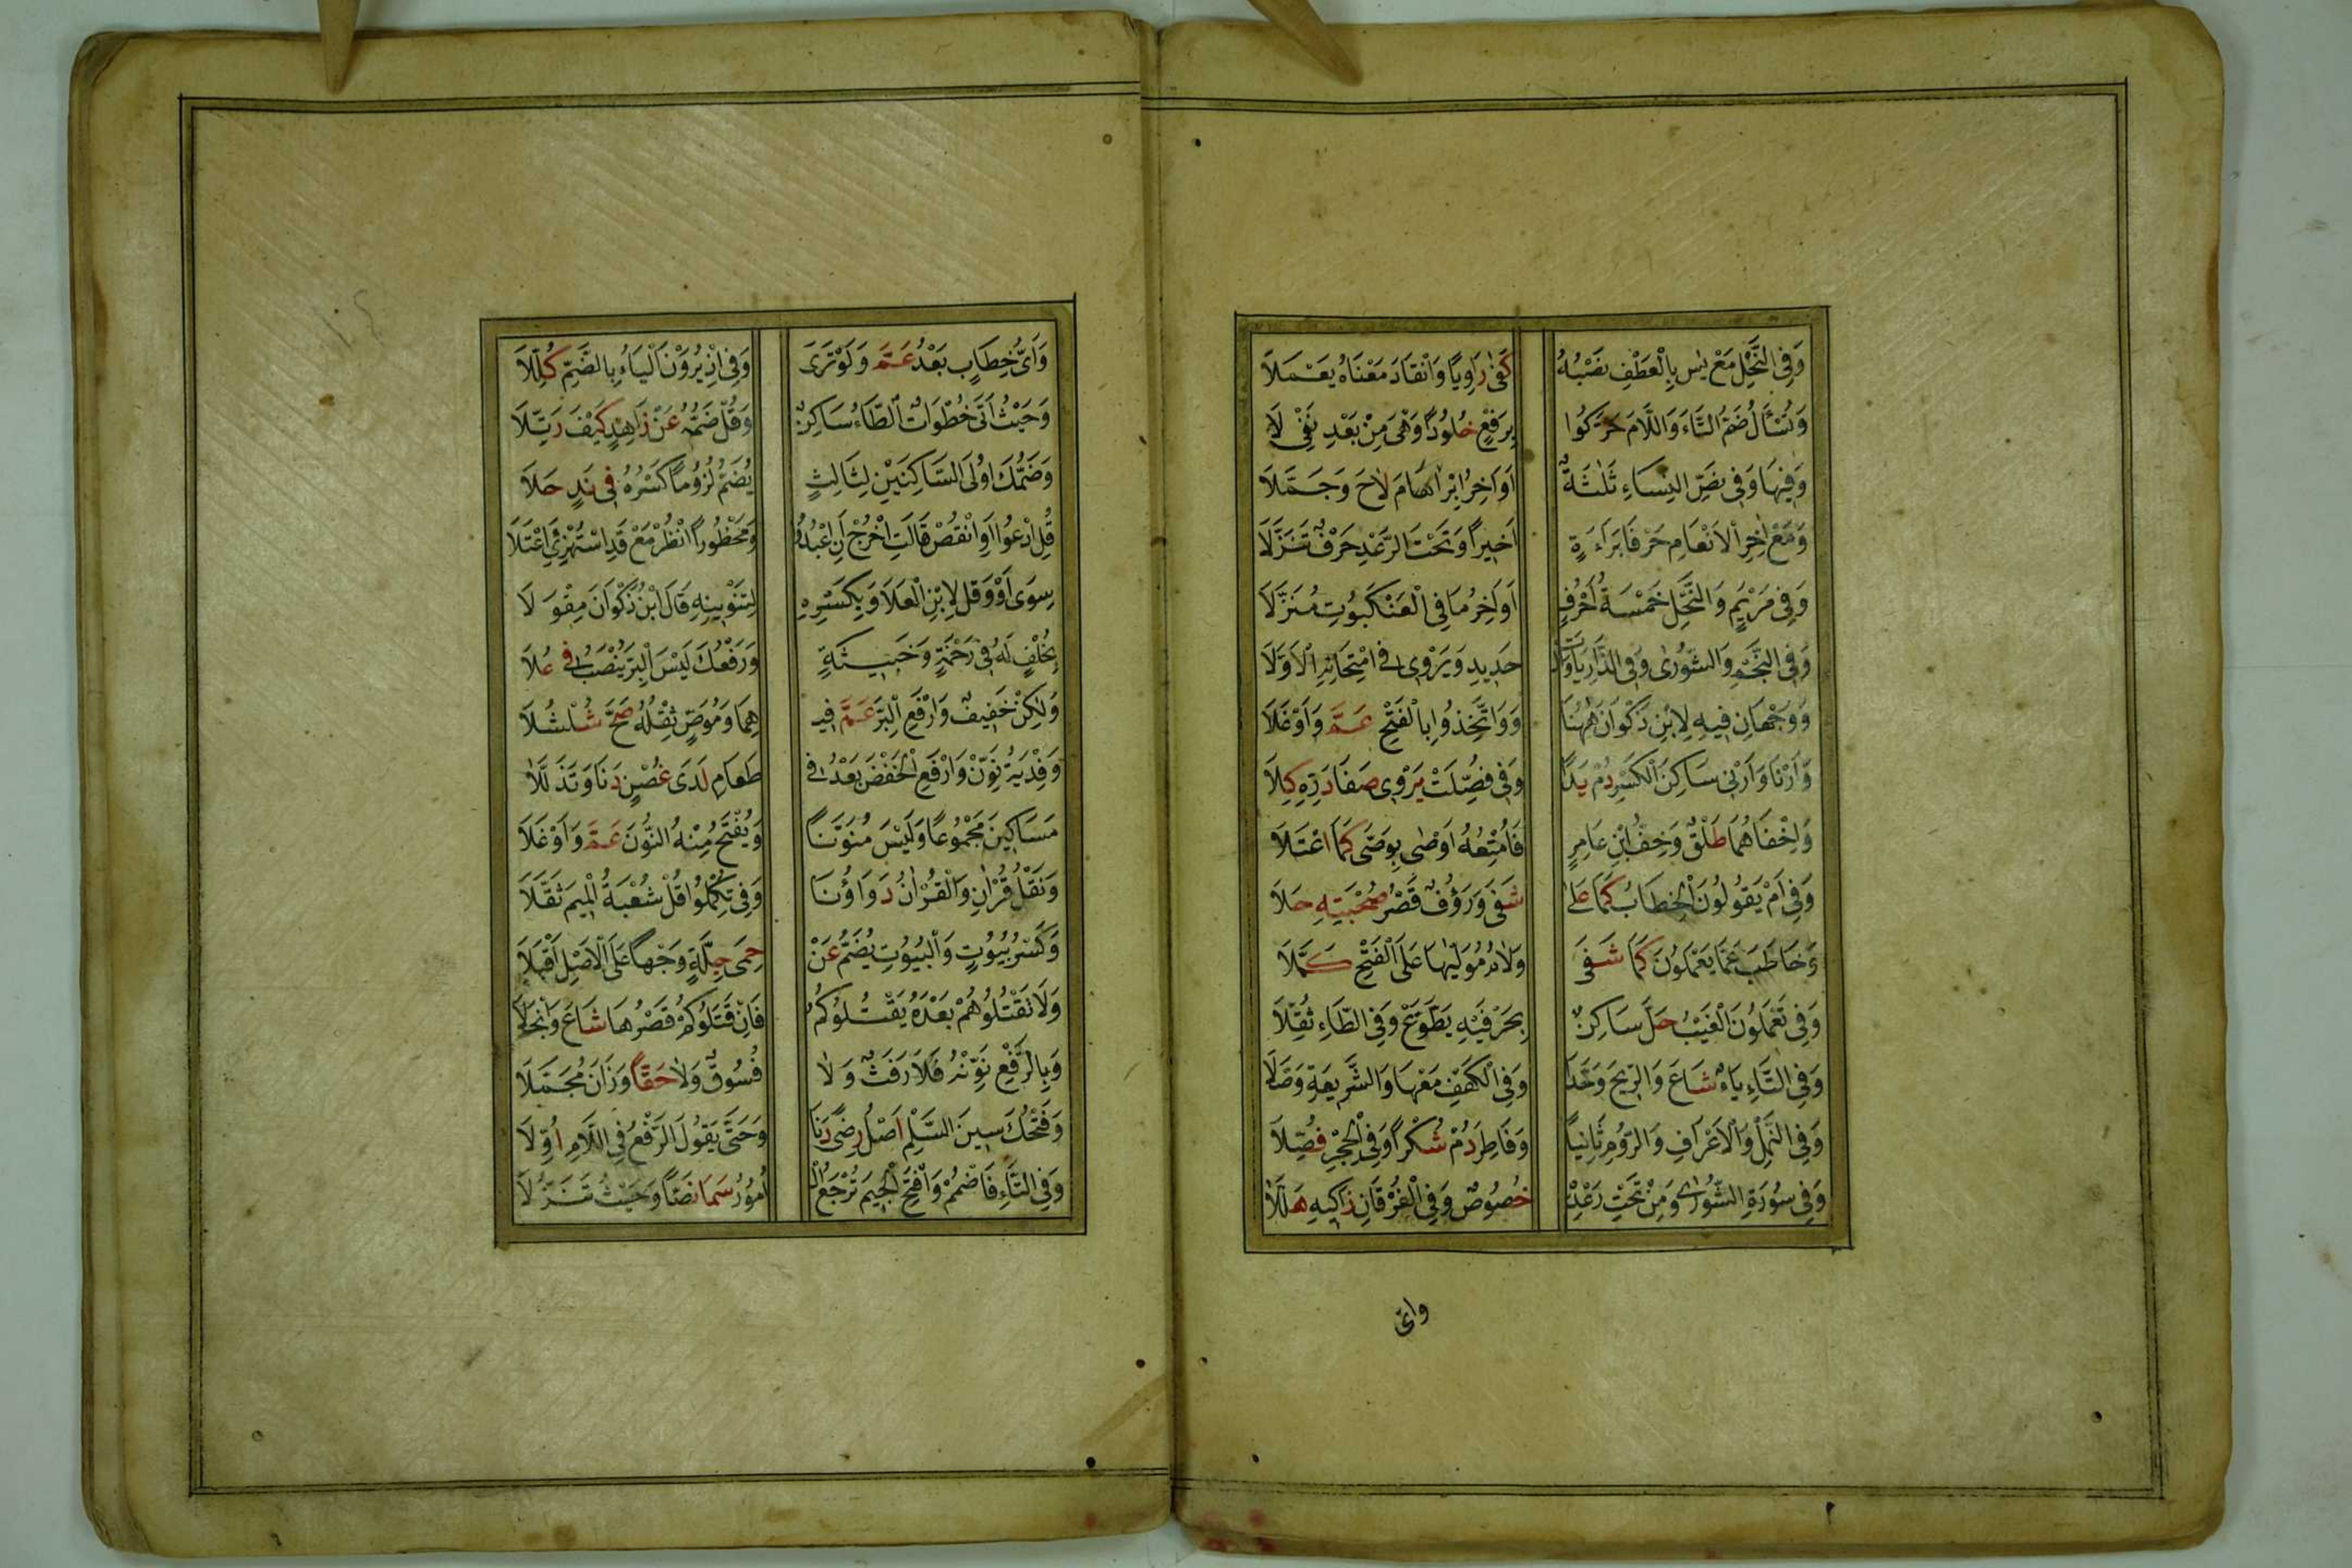 وَفِي النَّحْلِ مَعْ يٰسٓ بِالْعَطْفِ نَصْبُهُ كَفٰى رَاوِيًا وَانْقَادَ مَعْنَاهُ يَعْمَلَا
وَتُسْأَلُ ضَمُّ التَّاءَ وَاللَّامَ حَرَّكُوا بِرَفْعٍ خُلُودًا وَهْيَ مِنْ بَعْدِ نَفْيِ لَا
وَفِيهَا وَفِي نَصِّ النِّسَاءِ ثَلٰثَةٌ اَوَاخِرُ اِبْرَاهَامَ لَاحَ وَجَمَّلَا
وَمَعْ اٰخِرِ الْاَنْعَامِ حَرْفَا بَرَاءَةٍ اَخِيرًا وَتَحْتَ الرَّعْدِ حَرْفٌ تَنَزَّلَا
وَفِي مَرْيَمٍ وَالنَّحْلِ خَمْسَةُ اَحْرُفٍ اَوَاخِرُ مَا فِي الْعَنْكَبُوتِ مُنَزَّلَا
وَفِي النَّجْمِ وَالشُّورٰى وَفِي الذَّارِيَاتِ وَالْ حَدِيدِ وَيَرْوِي فِي امْتِحَانِهِ الْاَوَّلَا
وَوَجْهَانِ فِيهِ لِابْنِ ذَكْوَانَ هٰهُنَا وَوَاتَّخِذُوا بِالْفَتْحِ عَمَّ وَاَوْغَلَا
وَاَرْنَا وَاَرْنِي سَاكِنَ الْكَسْرِ دُمْ يَدًا وَفِي فُصِّلَتْ يَرْوِي صَفَا دَرِّهِ كِلَا
وَاِخْفَاهُمَا طَلْقٌ وَخِفُّ ابْنِ عَامِرٍ فَاُمْتِعُهُ اَوْصٰى بِوَصّٰى كَمَا اعْتَلَا
وَفِي اَمْ يَقُولُونَ الْخِطَابُ كَمَا عَلٰى شَفٰى وَرَؤُفٌ قَصْرُ صُحْبَتِهِ حَلَا
وَخَاطَبَ عَمَّا يَعْمَلُونَ كَمَا شَفٰى وَلَامُ مُوَلِّيهَا عَلَى الْفَتْحِ كَمَّلَا
وَفِي تَعْمَلُونَ الْغَيْبُ حَلَّ سَاكِنٌ بِحَرْفَيْهِ يَطَّوَّعْ وَفِي الطَّاءِ ثُقِّلَا
وَفِي التَّاءِ يَاءٌ شَاعَ وَالرِّيحَ وَحَّدَا وَفِي الْكَهْفِ مَعْهَا وَالشَّرِيعَةِ وَصَّلَا
وَفِي النَّمْلِ وَالْاَعْرَافِ وَالرُّومِ ثَانِيًا وَفَاطِرِ دُمْ شُكْرًا وَفِي الْحِجْرِ فُصِّلَا
وَفِي سُورَةِ الشُّورٰى وَمِنْ تَحْتِ رَعْدِهِ خُصُوصٌ وَفِي الْفُرْقَانِ زَاكِيهِ هَلَّلَا
واى
وَاَىُّ خِطَابٍ بَعْدُ عَمَّ وَلَوْ تَرٰى وَفِي اِذْ يُرَوْنَ الْيَاءُ بِالضَّمِّ كُلِّلَا
وَحَيْثُ اَتٰى خُطُوَاتٌ الطَّاءُ سَاكِنٌ وَقُلْ ضَمُّهُ عَنْ زَاهِدٍ كَيْفَ رَتَّلَا
وَضَمُّكَ اُولَى السَّاكِنَيْنِ لِثَالِثٍ يُضَمُّ لُزُومًا كَسْرُهُ فِي نَدٍ حَلَا
قُلِ ادْعُوا اَوِ انْقُصْ قَالَتِ اخْرُجْ اَنِ اعْبُدُوا وَمَحْظُورًا انْظُرْ مَعْ قَدِ اسْتُهْزِئَ اعْتَلَا
سِوٰى اَوْ وَقُلْ لِابْنِ الْعَلَا وَبِكَسْرِهِ لِتَنْوِينِهِ قَالَ ابْنُ ذَكْوَانَ مِقْوَلَا
بِخُلْفٍ لَهُ فِي رَحْمَةٍ وَخَبِيثَةٍ وَرَفْعُكَ لَيْسَ الْبِرُّ يُنْصَبُ فِي عُلَا
وَلٰكِنْ خَفِيفٌ وَارْفَعِ الْبِرَّ عَمَّ فِيـ هِمَا وَمُوَصٍّ ثِقْلُهُ صَحَّ شُلْشُلَا
وَفِدْيَةُ نَوِّنْ وَارْفَعِ الْخَفْضَ بَعْدُ فِي طَعَامِ لَدٰى غُصْنٍ دَنَا وَتَذَلَّلَا
مَسَاكِينَ مَجْمُوعًا وَلَيْسَ مُنَوَّنًا وَيُفْتَحُ مِنْهُ النُّونُ عَمَّ وَاَوْغَلَا
وَنَقْلُ قُرَانٍ وَالْقُرَانُ دَوَاؤُنَا وَفِي تُكْمِلُوا قُلْ شُعْبَةُ الْمِيمَ ثَقَّلَا
وَكَسْرُ بُيُوتٍ وَالْبُيُوتِ يُضَمُّ عَنْ حِمٰى جِلَّةٍ وَجْهًا عَلَى الْاَصْلِ اَقْبَلَا
وَلَا تَقْتُلُوهُمْ بَعْدَهُ يَقْتُلُوكُمُ فَاِنْ قَتَلُوكُمْ قَصْرُهَا شَاعَ وَانْجَلَا
وَبِالرَّفْعِ نَوِّنْهُ فَلَا رَفَثٌ وَلَا فُسُوقٌ وَلَا حَقًّا وَزَانَ مُجَمَّلَا
وَفَتْحُكَ سِينَ السَّلْمِ اَصْلُ رِضًى دَنَا وَحَتّٰى يَقُولَ الرَّفْعُ فِي اللَّامِ اُوِّلَا
وَفِي التَّاءِ فَاضْمُمْ وَافْتَحِ الْجِيمَ تُرْجَعُ الْـ اُمُورُ سَمَا نَصًّا وَحَيْثُ تَنَزَّلَا